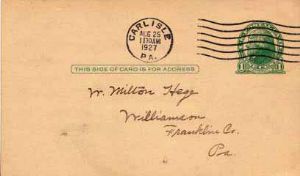 CARLISLE
AUG 25
11 00 AM
1927
PA.
THIS SIDE OF CARD IS FOR ADDRESS
W. Milton Hege
Williamson
Franklin Co.
Pa.